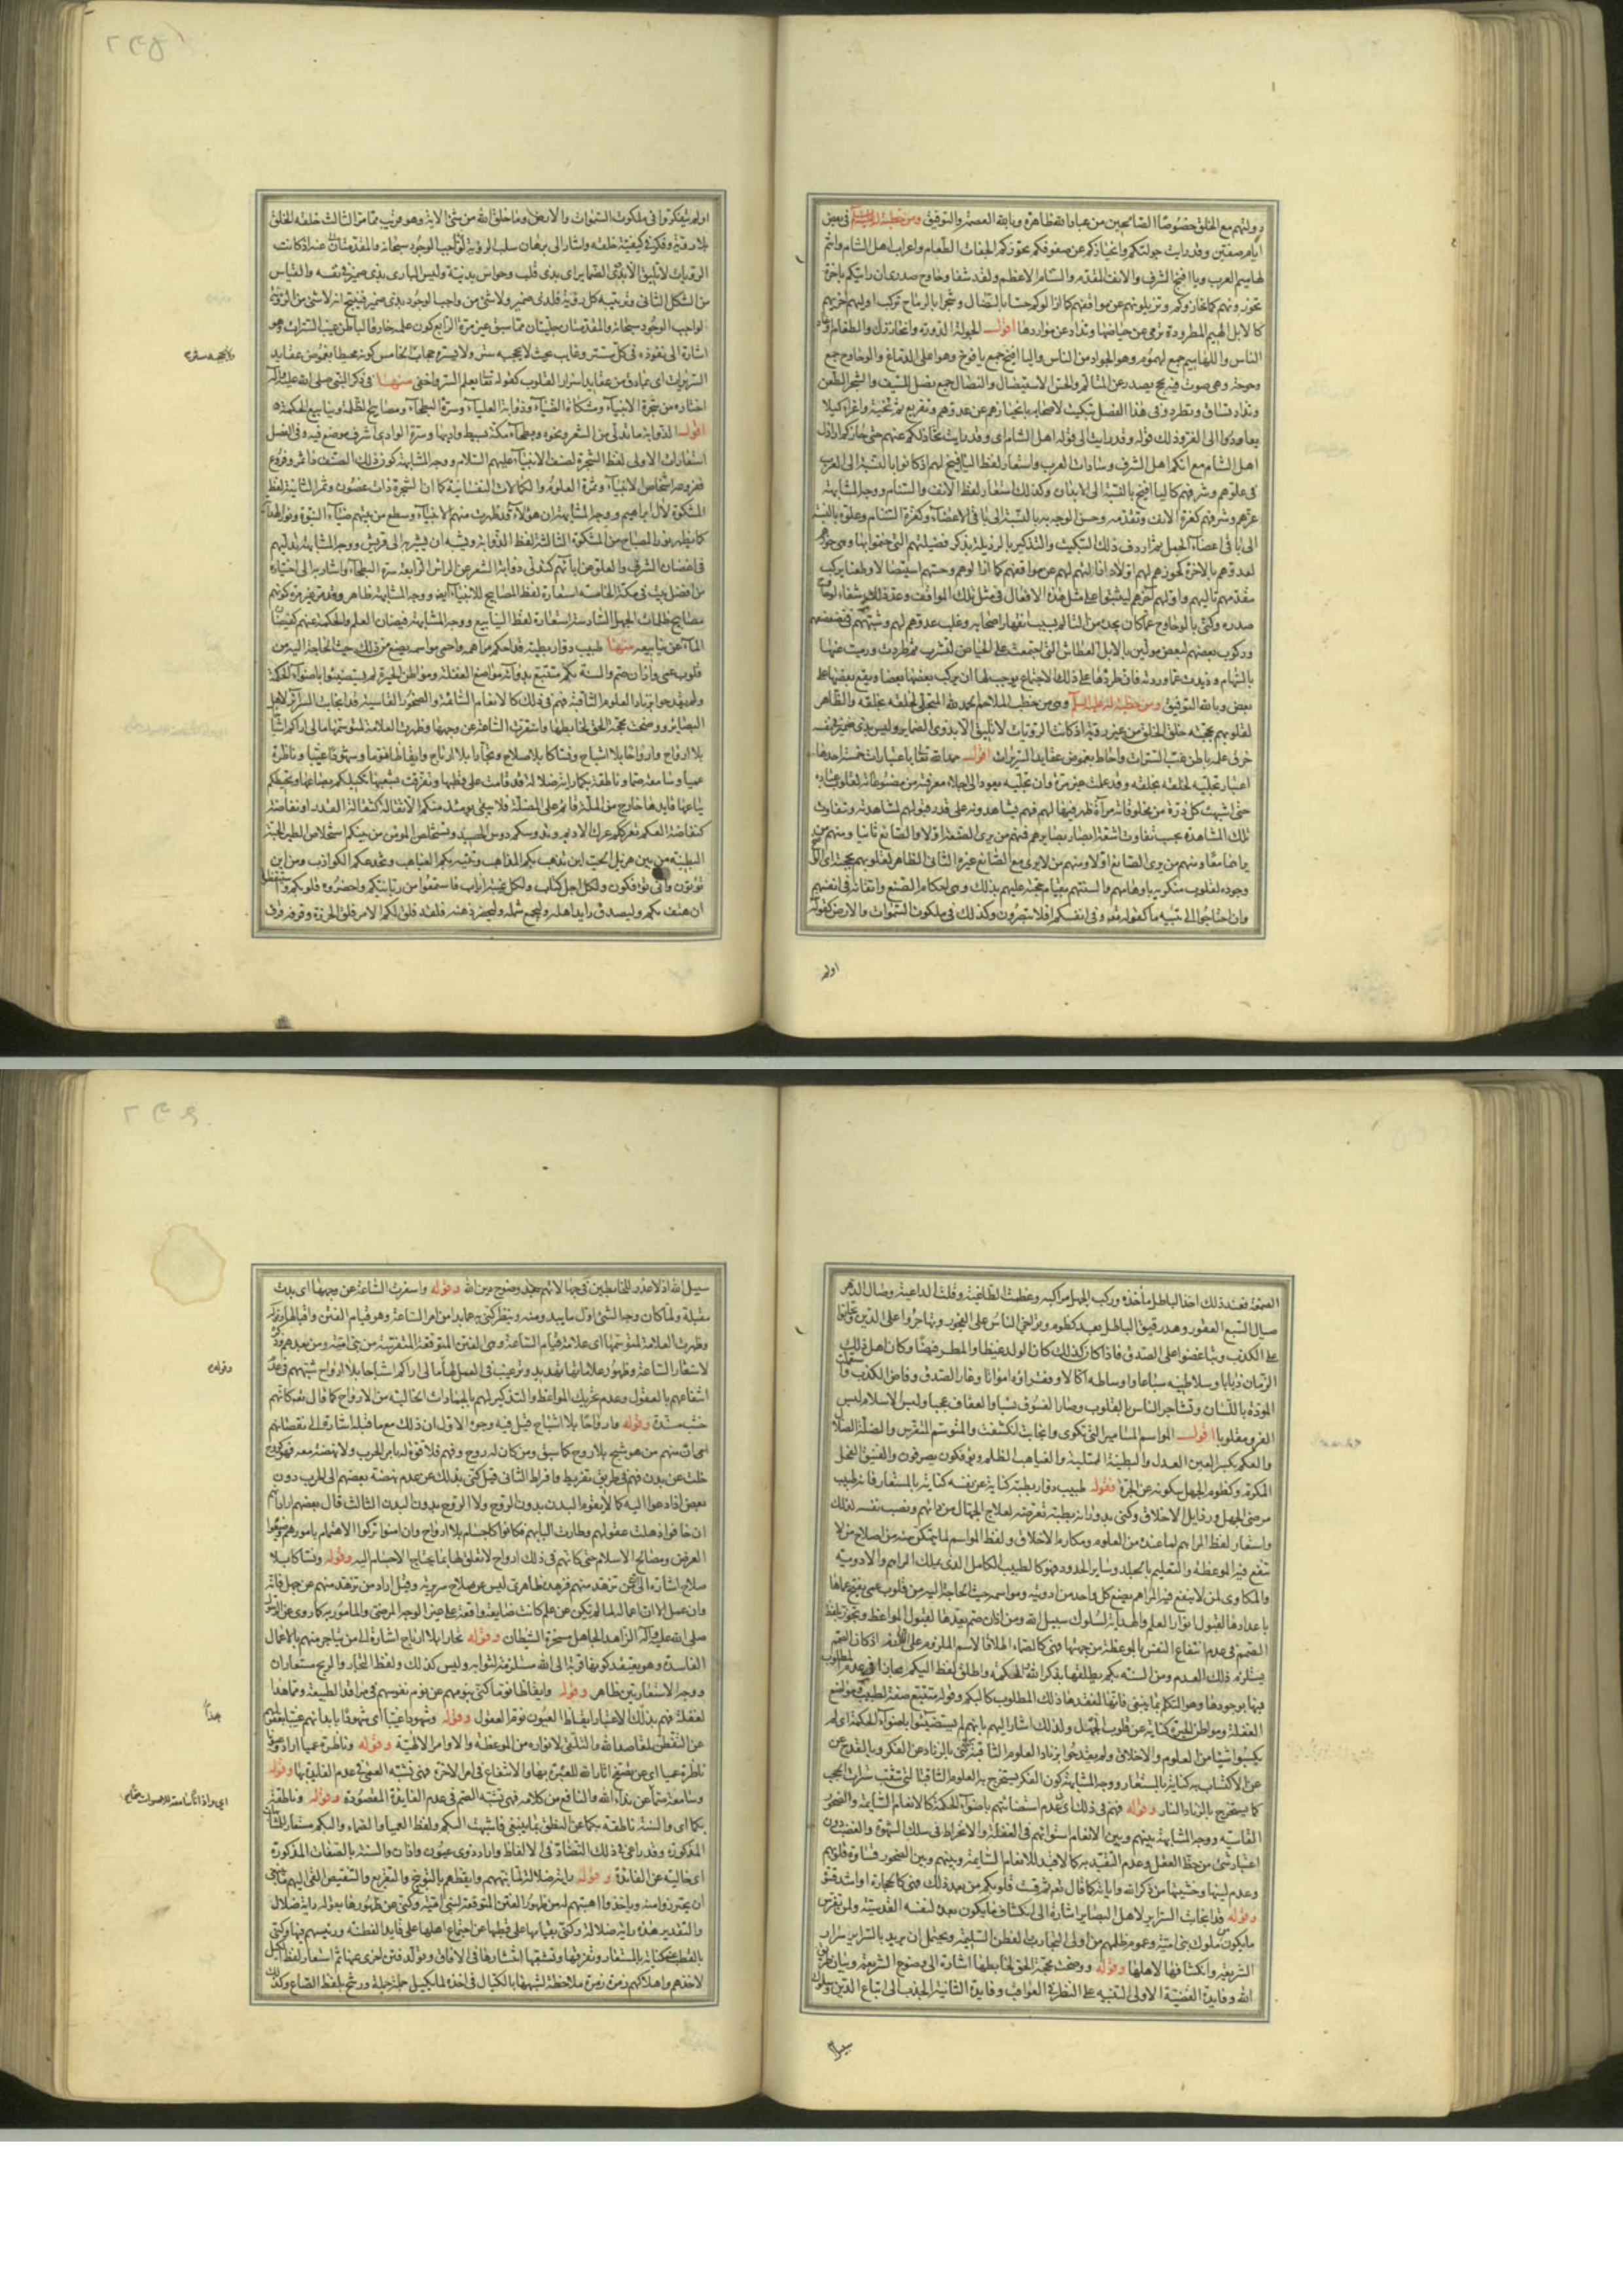 دولتهم مع الخلق خصوصا الصالحين من عباد الله ظاهرة وبالله العصمة والتوفيق ومن خطبة له عليه السلام في بعض
ايام صفين وقد رايت جولتكم وانحيازكم عن صفوفكم تحوزكم الجفاة الطغام واعراب اهل الشام وانتم
لهاميم العرب ويا افيخ الشرف والانف المقدم والسنام الاعظم ولقد شفا وحاوح صدري ان رايتكم باخرة
تحوزونهم كما حازوكم وتزيلونهم عن مواقفهم كما ازالوكم حسا بالنضال وشجرا بالرماح تركب اوليهم اخريهم
كالابل الهيم المطرودة ترمى عن حياضها وتذاد عن مواردها اقول الجولة الدورة وانحازوا
الناس واللهاميم جمع لهموم وهو الجواد من الناس واليا افيخ جمع يافوخ وهو اعلى الدماغ والوحاوح جمع
وحوحة وهي صوت فيه بحح يصدر عن المتالم والحس الاستيصال والنضال جمع نصل للسيف والشجر الطعن
وتذاد تساق وتطرد وفي هذا الفصل تبكيت لاصحابه بانحيازهم عن عدوهم وتقريع
يعاودوا الى الفرار وذلك قوله وقد رايت الى قوله اهل الشام اي وقد رايت
اهل الشام مع انكم اهل الشرف وسادات العرب واستعار لفظ اليا افيخ لهم اذ كانوا بالنسبة الى العرب
في علوهم وشرفهم كاليا افيخ بالنسبة الى الابدان وكذلك استعار لفظ الانف والسنام ووجه المشابهة
عزهم وشرفهم كعزة الانف وتقدمه وحسن الوجه به بالنسبة الى باقي الاعضاء وكعزة السنام وعلوه بالنسبة
الى باقي اعضاء الجمل ثم اردف ذلك التبكيت والتذكير بالرذيلة بذكر فضيلتهم التي ختموا بها وهي
صدره وكنى بالوحاوح عما كان يجده من التالم بسبب
وركوب بعضهم لبعض مولين بالابل العطاش التي اجتمعت على الحياض لتشرب ثم طردت ورميت عنها
بالسهام وذيدت عما وردته فان طردها على ذلك الاجتماع يوجب لها ان يركب بعضها بعضا ويقع بعضها على
بعض وبالله التوفيق ومن خطبة له عليه السلام وهي من خطب الملاحم الحمد لله المتجلي لخلقه بخلقه والظاهر
لقلوبهم بحجته خلق الخلق من غير روية اذ كانت الرويات لا تليق الا بذوي الضماير وليس بذي ضمير في نفسه
خرق علمه باطن غيب السترات واحاط بغموض عقايد السريرات اقول حمد الله تعالى باعتبارات خمسة احدها
اعتبار تجليه لخلقه بخلقه وقد علمت غير مرة ان تجليه يعود الى اجلاء معرفته من مصنوعاته لقلوب عباده
حتى اشبهت كل ذرة من مخلوقاته مرآة ظهر فيها لهم فهم يشاهدونه على قدر قبولهم لمشاهدته وتتفاوت
تلك المشاهدة بحسب تفاوت اشعة ابصار بصايرهم فمنهم من يرى الصنعة اولا والصانع ثانيا ومنهم من
يراهما معا ومنهم من يرى الصانع اولا ومنهم من لا يرى مع الصانع غيره الثاني الظاهر لقلوبهم بحجته اي
وجوده لقلوب منكريه باوهامهم والسنتهم بقيام حجته عليهم بذلك وهي احكام الصنع واتقانه في انفسهم
وان احتاجوا الى تنبيه ما كقوله تعالى وفي انفسكم افلا تبصرون وكذلك في ملكوت السموات والارض كقوله
اولم
اولم يتفكروا في ملكوت السموات والارض وما خلق الله من شيء الاية وهو قريب مما مر الثالث خلقه الخلق
بلا روية وفكرة في كيفية خلقه واشار الى برهان سلب الروية لواجب الوجود سبحانه والمقدمتان عنه اذ كانت
الرويات لا تليق الا بذوي الضماير اي بذي قلب وحواس بدنية وليس الباري بذي ضمير في نفسه والقياس
من الشكل الثاني وترتيبه كل روية فلذي ضمير ولا شيء من واجب الوجود بذي ضمير فينتج انه لا شيء من الروية
لواجب الوجود سبحانه والمقدمتان جليتان مما سبق غير مرة الرابع كون علمه خارقا لباطن غيب السترات وهو
اشارة الى نفوذه في كل مستتر وغايب بحيث لا يحجبه ستر ولا يستره حجاب الخامس كونه محيطا بغموض عقايد
السريرات اي بما دق من عقايد اسرار القلوب كقوله تعالى يعلم السر واخفى منها في ذكر النبي صلى الله عليه وآله
اختاره من شجرة الانبياء ومشكاة الضياء وذؤابة العلياء وسرة البطحاء ومصابيح الظلمة وينابيع الحكمة
اقول الذؤابة ما تدلى من الشعر ونحوه وبطحاء مكة بسيط واديها وسرة الوادي اشرف موضع فيه وفي الفصل
استعارات الاولى لفظ الشجرة لصنف الانبياء عليهم السلام ووجه المشابهة كون ذلك الصنف ذا ثمر وفروع
ففروعه اشخاص الانبياء وثمره العلوم والكمالات النفسانية كما ان الشجرة ذات غصون وثمر الثانية لفظ
المشكوة لآل ابراهيم ووجه المشابهة ان هؤلاء قد ظهرت منهم الانبياء وسطع من بيتهم ضياء النبوة ونور الهداية
كما يظهر نور المصباح من المشكوة الثالثة لفظ الذؤابة ويشبه ان يشير به الى قريش ووجه المشابهة تدليهم
في اغصان الشرف والعلو عن آبائهم كتدلي ذؤابة الشعر عن الراس الرابعة سرة البطحاء واشار به الى اختياره
من افضل بيت في مكة الخامسة استعارة لفظ المصابيح للانبياء ايضا ووجه المشابهة ظاهر وقد مر غير مرة كونهم
مصابيح ظلمات الجهل السادسة استعارة لفظ الينابيع ووجه المشابهة فيضان العلم والحكمة عنهم كفيضان
الماء عن ينابيعه منها طبيب دوار بطبه قد احكم مراهمه واحمى مواسمه يضع من ذلك حيث الحاجة اليه من
قلوب عمي واذان صم والسنة بكم متتبع بدوائه مواضع الغفلة ومواطن الحيرة لم يستضيئوا باضواء الحكمة
ولم يقدحوا بزناد العلوم الثاقبة فهم في ذلك كالانعام السائمة والصخور القاسية قد انجابت السراير لاهل
البصاير ووضحت محجة الحق لخابطها واسفرت الساعة عن وجهها وظهرت العلامة لمتوسمها ما لي اراكم اشباحا
بلا ارواح وارواحا بلا اشباح ونساكا بلا صلاح وتجارا بلا ارباح وايقاظا نوما وشهودا غيبا وناظرة
عميا وسامعة صما وناطقة بكما راية ضلالة قد قامت على قطبها وتفرقت بشعبها تكيلكم بصاعها وتخبطكم
بباعها قايدها خارج من الملة قائم على الضلة فلا يبقى يومئذ منكم الا ثفالة كثفالة القدر او نفاضة
كنفاضة العكم تعرككم عرك الاديم وتدوسكم دوس الحصيد وتستخلص المؤمن من بينكم استخلاص الطير الحبة
البطينة من بين هزيل الحب اين تذهب بكم المذاهب وتتيه بكم الغياهب وتخدعكم الكواذب ومن اين
تؤتون واني تؤفكون ولكل اجل كتاب ولكل غيبة اياب فاستمعوا من ربانيكم واحضروه قلوبكم واستيقظوا
ان هتف بكم وليصدق رايد اهله وليجمع شمله وليحضر ذهنه فلقد فلق لكم الامر فلق الخرزة وقرفه قرف
الصمغة فعند ذلك اخذ الباطل مآخذه وركب الجهل مراكبه وعظمت الطاغية وقلت الداعية وصال الدهر
صيال السبع العقور وهدر فنيق الباطل بعد كظوم وتواخى الناس على الفجور وتهاجروا على الدين وتحابوا
على الكذب وتباغضوا على الصدق فاذا كان ذلك كان الولد غيظا والمطر قيظا وكان اهل ذلك
الزمان ذيابا وسلاطينه سباعا واوساطه اكالا وفقراؤه امواتا وغار الصدق وفاض الكذب
المودة باللسان وتشاجر الناس بالقلوب وصار الفسوق نسبا والعفاف عجبا ولبس الاسلام لبس
الفرو مقلوبا اقول المواسم المسامير التي تكوى وانجابت انكشفت والمتوسم المتفرس والضلة الضلال
والعكم بكسر العين العدل والبطينة الممتلئة والغياهب الظلم وتؤفكون تصرفون والفنيق الفحل
المكرم وكظوم الجمل سكوته عن الجرة فقوله طبيب دوار بطبه كناية عن نفسه كناية بالمستعار فانه طبيب
مرضى الجهل ورذايل الاخلاق وكنى بدورانه بطبه تعرضه لعلاج الجهال من دائهم ونصب نفسه لذلك
واستعار لفظ المراهم لما عنده من العلوم ومكارم الاخلاق ولفظ المواسم لما يتمكن منه من اصلاح من لا
تنفع فيه الموعظة والتعليم بالجلد وساير الحدود فهو كالطبيب الكامل الذي يملك المراهم والادوية
والمكاوي لمن لا ينفع فيه المراهم يضع كل واحد من ادويته ومواسمه حيث الحاجة اليه من قلوب عمي يفتح عماها
باعدادها لقبول انوار العلم والهداية لسلوك سبيل الله ومن اذان صم يعدها لقبول المواعظ وتجوز بلفظ
الصمم في عدم انتفاع النفس بالموعظة من جهتها
يستلزم ذلك العدم ومن السنة بكم يطلقها بذكر الله والحكمة واطلق لفظ البكم مجازا في عدم المطلوب
فيها بوجودها وهو التكلم بما ينبغي فانها لفقدها ذلك المطلوب كالبكم وقوله متتبع صفة لطبيب ومواضع
الغفلة ومواطن الحيرة كناية عن قلوب الجهال ولذلك اشار اليهم بانهم لم يستضيئوا باضواء الحكمة اي لم
يكسبوا شيئا من العلوم والاخلاق ولم يقدحوا بزناد العلوم الثاقبة فكنى بالزناد عن الفكر وبالقدح عن
عن الاكتساب به كناية بالمستعار ووجه المشابهة كون الفكر يستخرج به العلوم الثاقبة التي تثقب سترات الحجب
كما يستخرج بالزناد النار وقوله فهم في ذلك اي في عدم استضائتهم باضواء الحكمة كالانعام السائمة والصخور
القاسية ووجه المشابهة بينهم وبين الانعام استوائهم في الغفلة والانخراط في سلك الشهوة والغضب دون
اعتبار شيء من حظ العقل وعدم التقيد به كما لا قيد للانعام السائمة وبينهم وبين الصخور قساوة قلوبهم
وعدم لينها وخشيتها من ذكر الله واياته كما قال تعالى ثم قست قلوبكم من بعد ذلك فهي كالحجارة او اشد قسوة
وقوله قد انجابت السراير لاهل البصاير اشارة الى انكشاف ما يكون بعده لنفسه القدسية ولمن تفرس
ما يكون من ملوك بني امية وعموم ظلمهم من اولي التجارب والفطن السليمة ويحتمل ان يريد بالسراير اسرار
الشريعة وانكشافها لاهلها وقوله ووضحت محجة الحق لخابطها اشارة الى وضوح الشريعة وبيان طريق
الله وفايدة القضية الاولى التنبيه على النظر في العواقب وفايدة الثانية الجذب الى اتباع الدين وسلوك
سبيل
سبيل الله اذ لا عذر للخابطين في جهلها لانهم بعد وضوح دين الله وقوله واسفرت الساعة عن وجهها اي بدت
مقبلة ولما كان وجه الشيء اول ما يبدو منه وينظر كنى به عما بدا من امر الساعة وهو قيام الفتن واقبالها وقوله
وظهرت العلامة لمتوسمها اي علامة قيام الساعة وهي الفتن المتوقعة المتفرسة من بني امية ومن بعدهم
لاسفار الساعة وظهور علاماتها تهديد وترغيب في العمل لها ما لي اراكم اشباحا بلا ارواح شبههم في عدم
انتفاعهم بالعقول وعدم تحريك المواعظ والتذكير لهم بالجمادات الخالية من الارواح كما قال تعالى كانهم
خشب مسندة وقوله وارواحا بلا اشباح قيل فيه وجوه الاول ان ذلك مع ما قبله اشارة الى نقصانهم
اي ان منهم من هو شبح بلا روح كما سبق ومن كان له روح وفهم فلا قوة له بامر الحرب ولا نهضة معه فهو كروح
خلت عن بدن فهم في طرفي تفريط وافراط الثاني قيل كنى بذلك عن عدم نهضة بعضهم الى الحرب دون
بعض اذا دعوا اليه كما لا يقوم البدن بدون الروح ولا الروح بدون البدن الثالث قال بعضهم اراد انهم
ان خافوا ذهلت عقولهم وطارت البابهم فكانوا كاجسام بلا ارواح وان امنوا تركوا الاهتمام بامورهم وضيعوا
الفرص ومصالح الاسلام حتى كانهم في ذلك ارواح لا تعلق لها بما يحتاج الاجسام اليه وقوله ونساكا بلا
صلاح اشارة الى من تزهد منهم فزهده ظاهري ليس عن صلاح سريرة وقيل اراد من تزهد منهم عن جهل فانه
وان عمل الا ان اعماله لما لم تكن عن علم كانت ضايعة واقعة على غير الوجه المرضي والمامور به كما روى عن الرسول
صلى الله عليه وآله الزاهد الجاهل مسخرة الشيطان وقوله تجارا بلا ارباح اشارة الى من يتاجر منهم بالاعمال
الفاسدة وهو يعتقد كونها قربة الى الله مستلزمة لثوابه وليس كذلك ولفظ التجار والربح مستعاران
ووجه الاستعارتين ظاهر وقوله وايقاظا نوما كنى بنومهم عن نوم نفوسهم في مراقد الطبيعة ومهاد
الغفلة فهم بذلك الاعتبار ايقاظ العيون نوم العقول وقوله وشهودا غيبا اي شهودا بابدانهم غيبا بعقولهم
عن التفطن لمقاصد الله والتلقي لانواره من الموعظة والاوامر الالهية وقوله وناظرة عميا اراد وعيونا
ناظرة عميا اي عن تصفح اثار الله للعبرة بها والانتفاع في امر الاخرة فهي تشبه العمي في عدم الفايدة بها وقوله
وسامعة صما عن نداء الله والنافع من كلامه فهي تشبه الصم في عدم الفايدة المقصودة وقوله وناطقة
بكما اي والسنة ناطقة بكما عن النطق بما ينبغي فاشبهت البكم ولفظ العميا والصماء والبكم مستعار
المذكورة وقد راعى في ذلك التضاد في الالفاظ واراد ذوي عيون واذان والسنة بالصفات المذكورة
اي خالية عن الفايدة وقوله راية ضلالة لما نبههم وايقظهم بالتوبيخ والتقريع والتنقيص القى اليهم
ان يحترزوا منه وياخذوا اهبتهم له من ظهور الفتن المتوقعة لبني امية وكنى عن ظهورها بقوله راية ضلال
والتقدير هذه راية ضلالة وكنى بقيامها على قطبها عن اجتماع اهلها على قايد الفتنة ورئيسهم فيها وكنى
بالقطب عنه كناية بالمستعار وتفرقها وتشعبها انتشارها في الافاق وتولد فتن اخرى عنها ثم استعار لفظ الكيل
لاخذهم واهلاكهم زمرة زمرة ملاحظة لشبهها بالكيال في اخذه لما يكيل جملة جملة ورشح بلفظ الصاع وكذلك